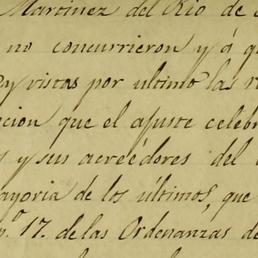 Martinez del Rio de
no concurrieron y á q
y vistas por ultimo las r
cion que el ajuste celebr
s y sus acreédores del
ayoria de los últimos, que
n.º 17. de las Ordenanzas de